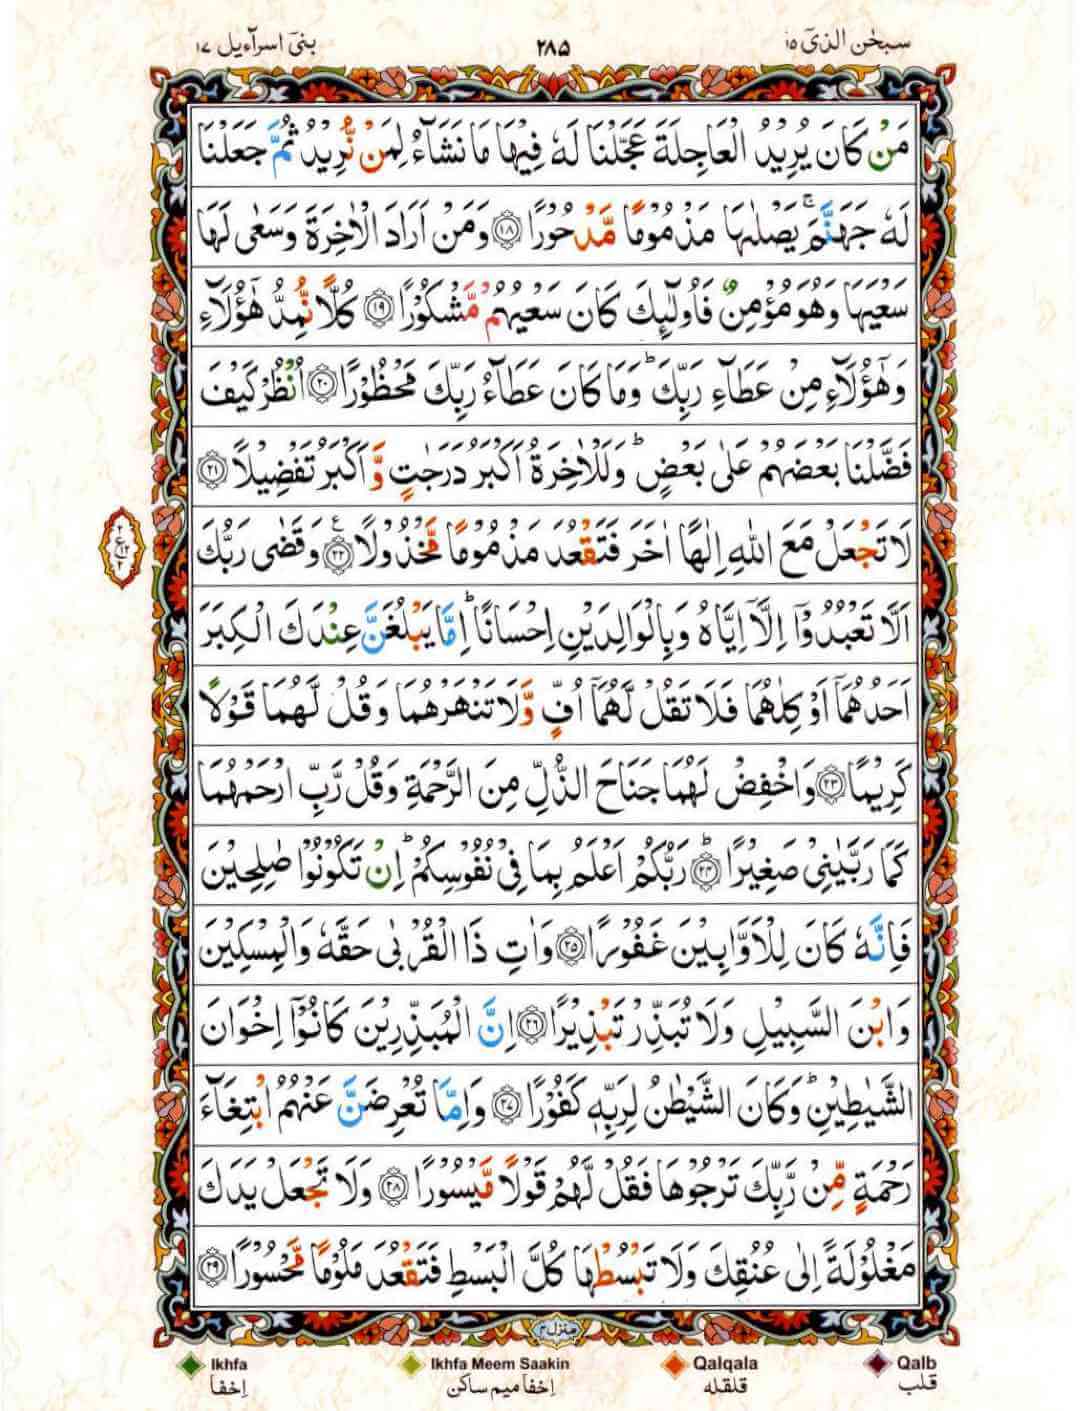 سبحٰن الذیۤ ۱۵
۲۸۵
بنیۤ اسرآءیل ۱۷
مَنْ كَانَ يُرِيْدُ الْعَاجِلَةَ عَجَّلْنَا لَهٗ فِيْهَا مَا نَشَآءُ لِمَنْ نُّرِيْدُ ثُمَّ جَعَلْنَا
لَهٗ جَهَنَّمَ ۚ يَصْلٰىهَا مَذْمُوْمًا مَّدْحُوْرًا ۝۱۸ وَمَنْ اَرَادَ الْاٰخِرَةَ وَسَعٰى لَهَا
سَعْيَهَا وَهُوَ مُؤْمِنٌ فَاُولٰٓئِكَ كَانَ سَعْيُهُمْ مَّشْكُوْرًا ۝۱۹ كُلًّا نُّمِدُّ هٰٓؤُلَآءِ
وَهٰٓؤُلَآءِ مِنْ عَطَآءِ رَبِّكَ ؕ وَمَا كَانَ عَطَآءُ رَبِّكَ مَحْظُوْرًا ۝۲۰ اُنْظُرْ كَيْفَ
فَضَّلْنَا بَعْضَهُمْ عَلٰى بَعْضٍ ؕ وَلَلْاٰخِرَةُ اَكْبَرُ دَرَجٰتٍ وَّاَكْبَرُ تَفْضِيْلًا ۝۲۱
لَا تَجْعَلْ مَعَ اللّٰهِ اِلٰهًا اٰخَرَ فَتَقْعُدَ مَذْمُوْمًا مَّخْذُوْلًا ۝۲۲ ع وَقَضٰى رَبُّكَ
اَلَّا تَعْبُدُوْۤا اِلَّاۤ اِيَّاهُ وَبِالْوَالِدَيْنِ اِحْسَانًا ؕ اِمَّا يَبْلُغَنَّ عِنْدَكَ الْكِبَرَ
اَحَدُهُمَاۤ اَوْ كِلٰهُمَا فَلَا تَقُلْ لَّهُمَاۤ اُفٍّ وَّلَا تَنْهَرْهُمَا وَقُلْ لَّهُمَا قَوْلًا
كَرِيْمًا ۝۲۳ وَاخْفِضْ لَهُمَا جَنَاحَ الذُّلِّ مِنَ الرَّحْمَةِ وَقُلْ رَّبِّ ارْحَمْهُمَا
كَمَا رَبَّيٰنِيْ صَغِيْرًا ۝۲۴ؕ رَبُّكُمْ اَعْلَمُ بِمَا فِيْ نُفُوْسِكُمْ ؕ اِنْ تَكُوْنُوْا صٰلِحِيْنَ
فَاِنَّهٗ كَانَ لِلْاَوَّابِيْنَ غَفُوْرًا ۝۲۵ وَاٰتِ ذَا الْقُرْبٰى حَقَّهٗ وَالْمِسْكِيْنَ
وَابْنَ السَّبِيْلِ وَلَا تُبَذِّرْ تَبْذِيْرًا ۝۲۶ اِنَّ الْمُبَذِّرِيْنَ كَانُوْۤا اِخْوَانَ
الشَّيٰطِيْنِ ؕ وَكَانَ الشَّيْطٰنُ لِرَبِّهٖ كَفُوْرًا ۝۲۷ وَاِمَّا تُعْرِضَنَّ عَنْهُمُ ابْتِغَآءَ
رَحْمَةٍ مِّنْ رَّبِّكَ تَرْجُوْهَا فَقُلْ لَّهُمْ قَوْلًا مَّيْسُوْرًا ۝۲۸ وَلَا تَجْعَلْ يَدَكَ
مَغْلُوْلَةً اِلٰى عُنُقِكَ وَلَا تَبْسُطْهَا كُلَّ الْبَسْطِ فَتَقْعُدَ مَلُوْمًا مَّحْسُوْرًا ۝۲۹
منزل ۴
Ikhfa Ikhfa Meem Saakin Qalqala Qalb
اِخفا اِخفا میم ساکن قلقله قلب